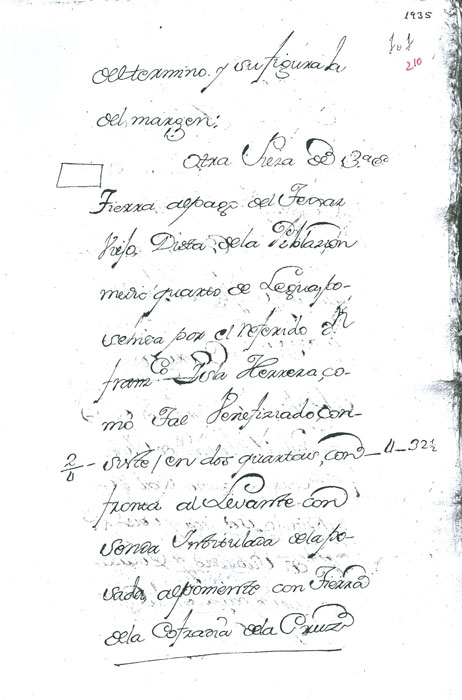 1935
fol
210
del termino. y su figura la
del margen:
Otra Pieza de
Tierra al pago del
Dista, de la Poblazion
medio quarto de Legua, po-
sehida por el referido Dn
franco. Isla Herrera, co-
mo Tal Benefiziado, con-
2/4 - siste / en dos quartas, con- 4-32½
fronta al Levante con
Senda Intitulada de la po-
sada, al poniente con Tierra
de la Cofradia de la Cruz